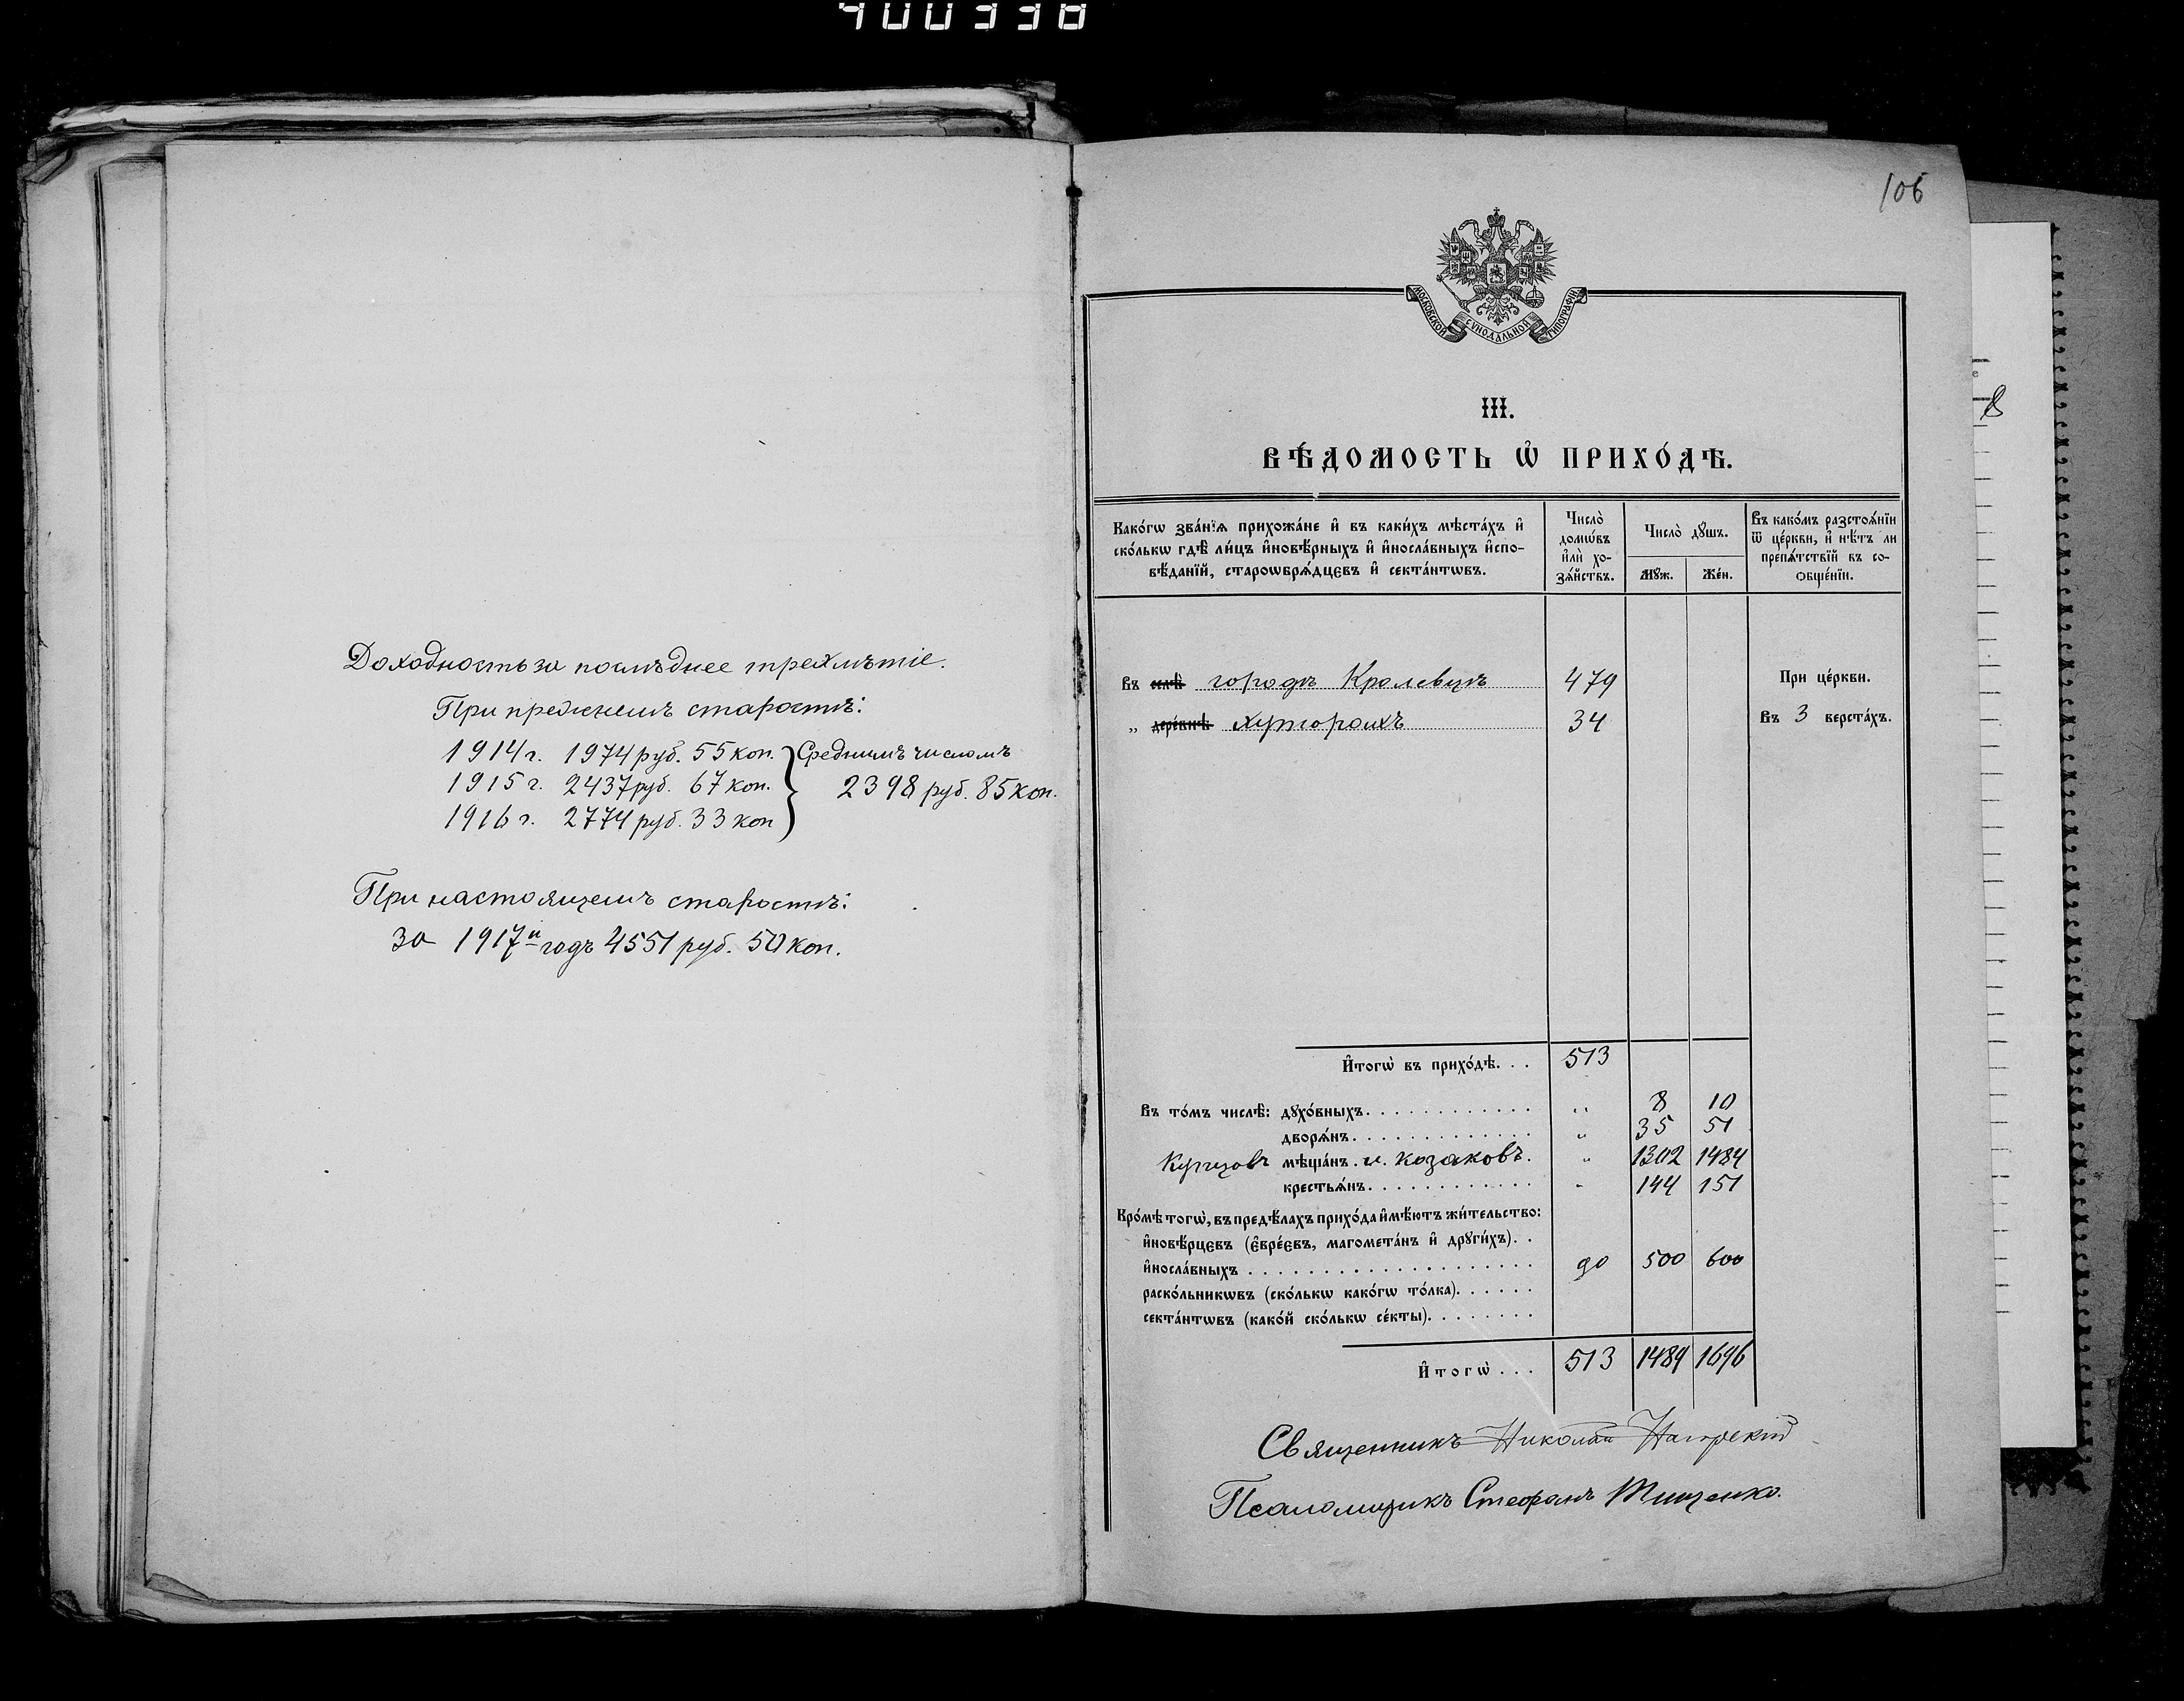 400338
Доходность за послѣднее трехлѣтіе.
При прежнемъ старостѣ:
1914 г. 1974 руб. 55 коп. } Среднимъ числомъ
1915 г. 2437 руб. 67 коп. 2398 руб. 85 коп.
1916 г. 2774 руб. 33 коп
При настоящемъ старостѣ:
За 1917й годъ 4551 руб. 50 коп.
106
МОСКОВСКОЙ СѴНОДАЛЬНОЙ ТИПОГРАФІИ
III.
ВѢ́ДОМОСТЬ Ѡ҆ ПРИХО́ДѢ.
Како́гѡ зва́нїѧ прихожа́не и҆ въ каки́хъ мѣста́хъ и҆
ско́лькѡ гдѣ̀ ли́цъ и҆новѣ́рныхъ и҆ и҆носла́вныхъ и҆спо-
вѣ́данїй, староѡбрѧ́дцєвъ и҆ секта́нтѡвъ.
Число̀
домѡ́въ
и҆лѝ хо-
зѧ́йствъ.
Число̀ дꙋ́шъ.
Мꙋ́ж.
Же́н.
Въ како́мъ разстоѧ́нїи
ѿ це́ркви, и҆ нѣ́тъ ли
препѧ́тствїй въ со-
ѻбще́нїи.
въ селѣ̀ городѣ Кролевцѣ 479 При це́ркви.
„ дере́внѣ хуторахъ 34 Въ 3 верста́хъ.
И҆тогѡ̀ въ прихо́дѣ. . . 513
Въ то́мъ числѣ̀: дꙋхо́вныхъ. „ 8 10
дворѧ́нъ. „ 35 51
Купцовъ мѣща́нъ. и. козаковъ. „ 1302 1484
крестьѧ́нъ. „ 144 151
Кро́мѣ тогѡ̀, въ предѣ́лахъ прихо́да и҆мѣ́ютъ жи́тельство:
и҆новѣ́рцєвъ (є҆вре́євъ, магомета́нъ и҆ дрꙋги́хъ). .
и҆носла́вныхъ до 500 600
раско́льникѡвъ (ско́лькѡ како́гѡ то́лка).
секта́нтѡвъ (како́й ско́лькѡ се́кты).
И҆тогѡ̀ . . . 513 1489 1696
Священникъ Николай
Псаломщикъ Стефанъ Тищенко.